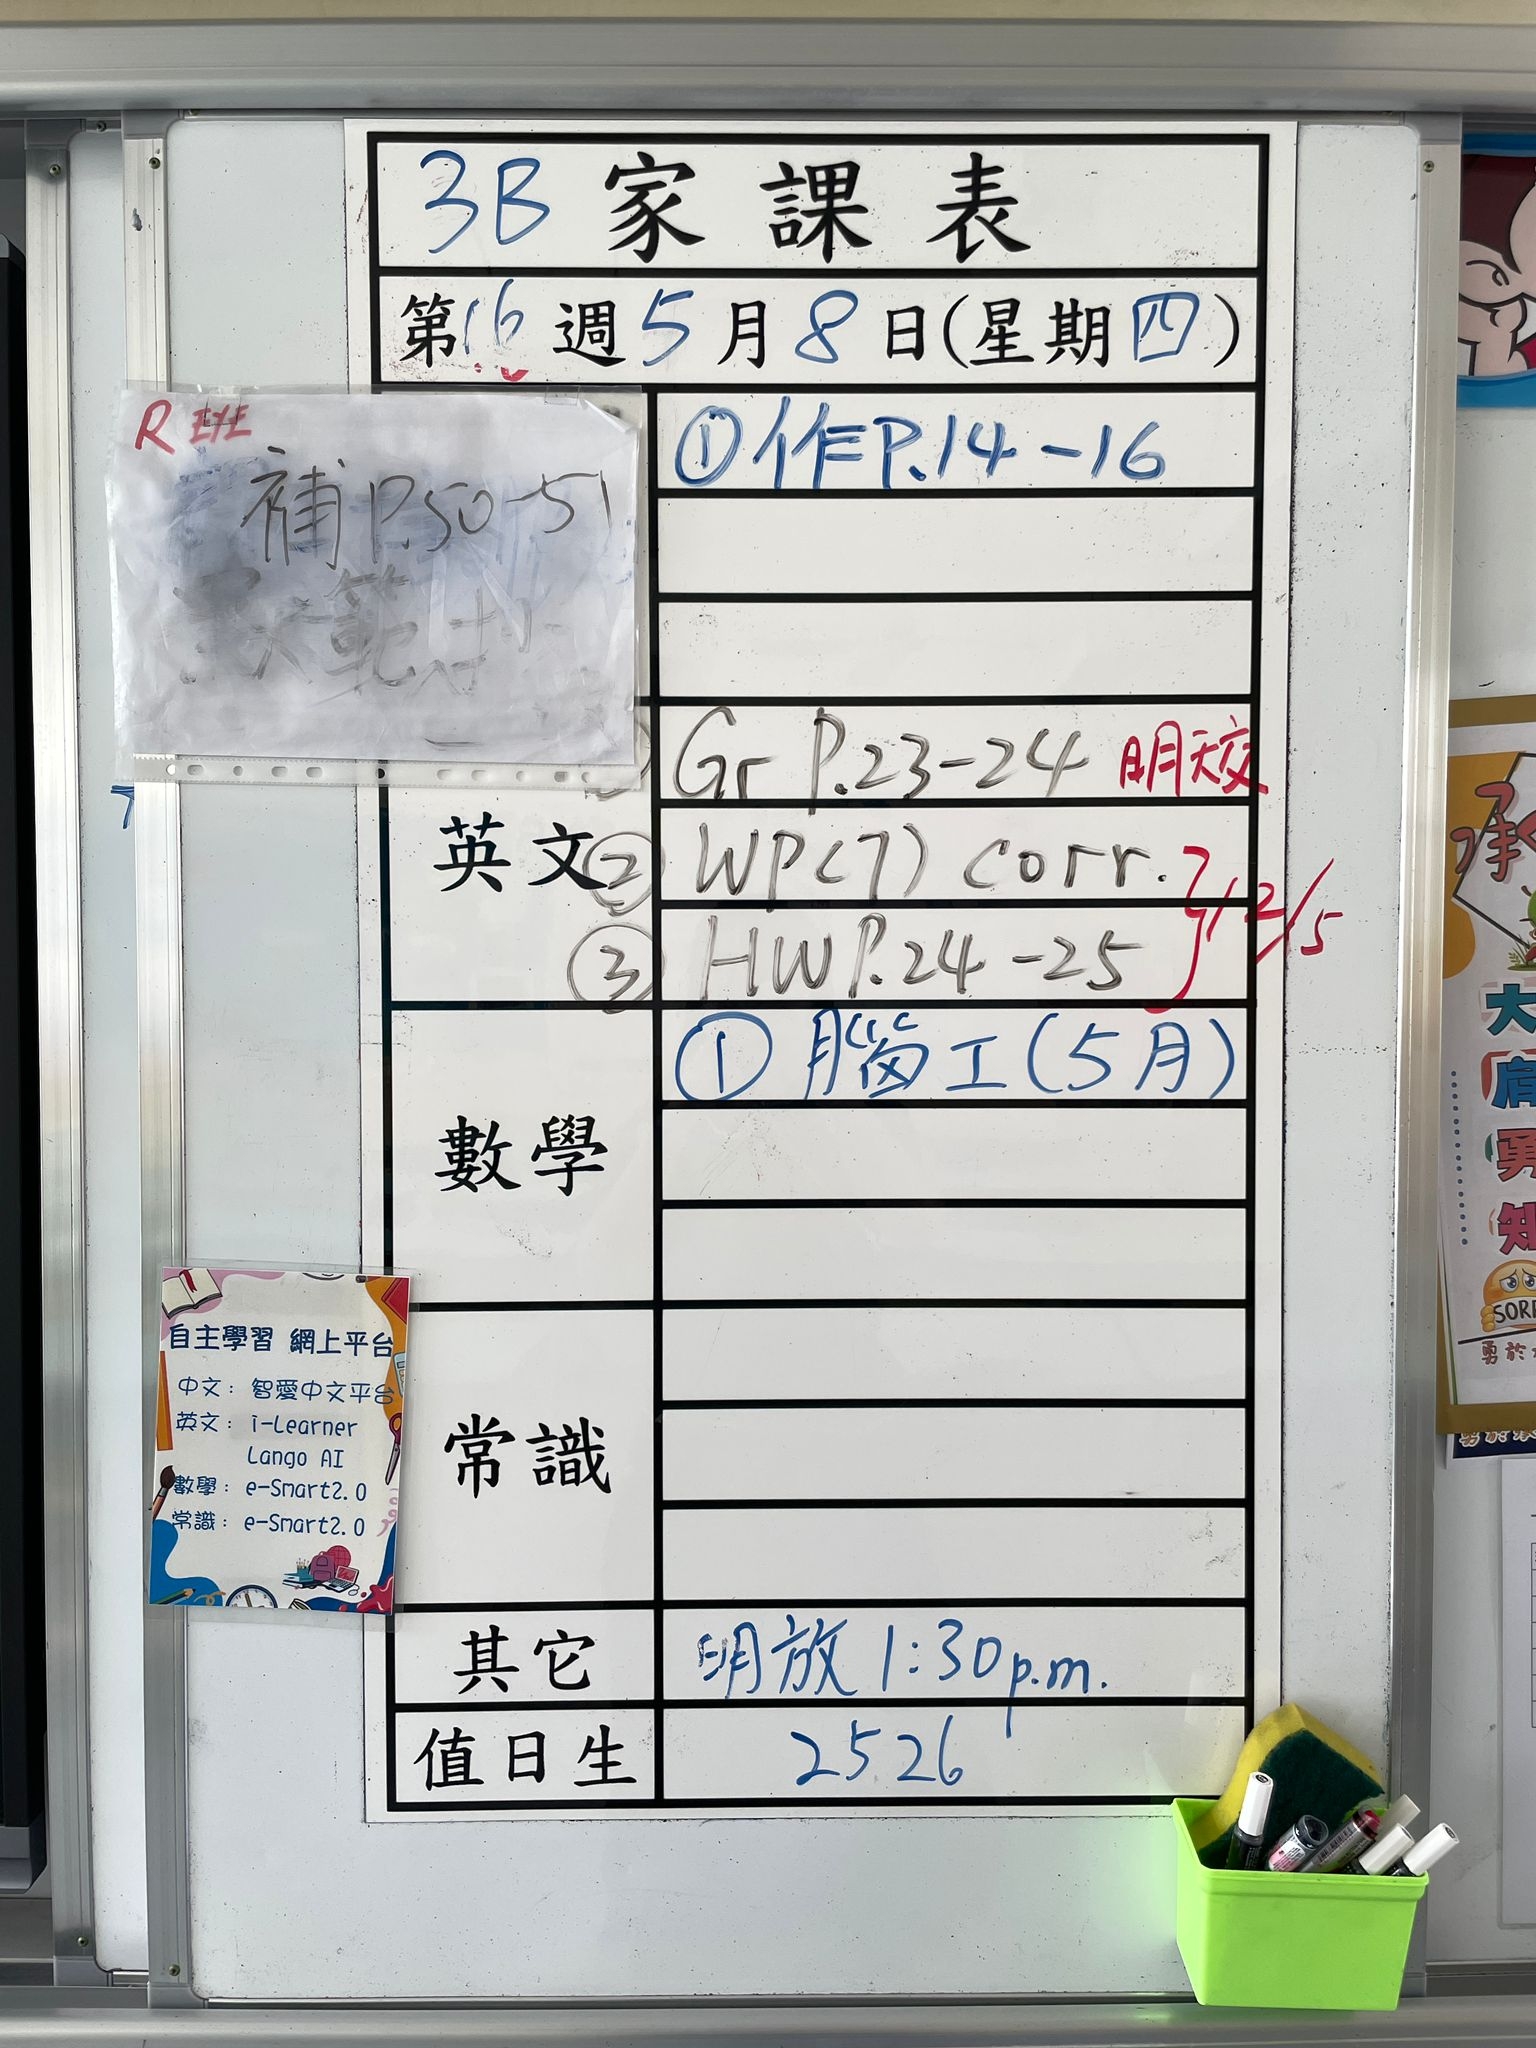 3B 家課表
第16週5月8日(星期四)
R EYE
補P.50-51
①作P.14-16
英文
Gr P.23-24 明天交
② WP(7) corr.
③ HW P.24-25
} 12/5
數學
①腦工(5月)
常識
其它
明放1:30p.m.
值日生
25 26
自主學習 網上平台
中文：智愛中文平台
英文：i-Learner
Lango AI
數學：e-Smart2.0
常識：e-Smart2.0
承
大
肩
勇
知
勇於
勇於承